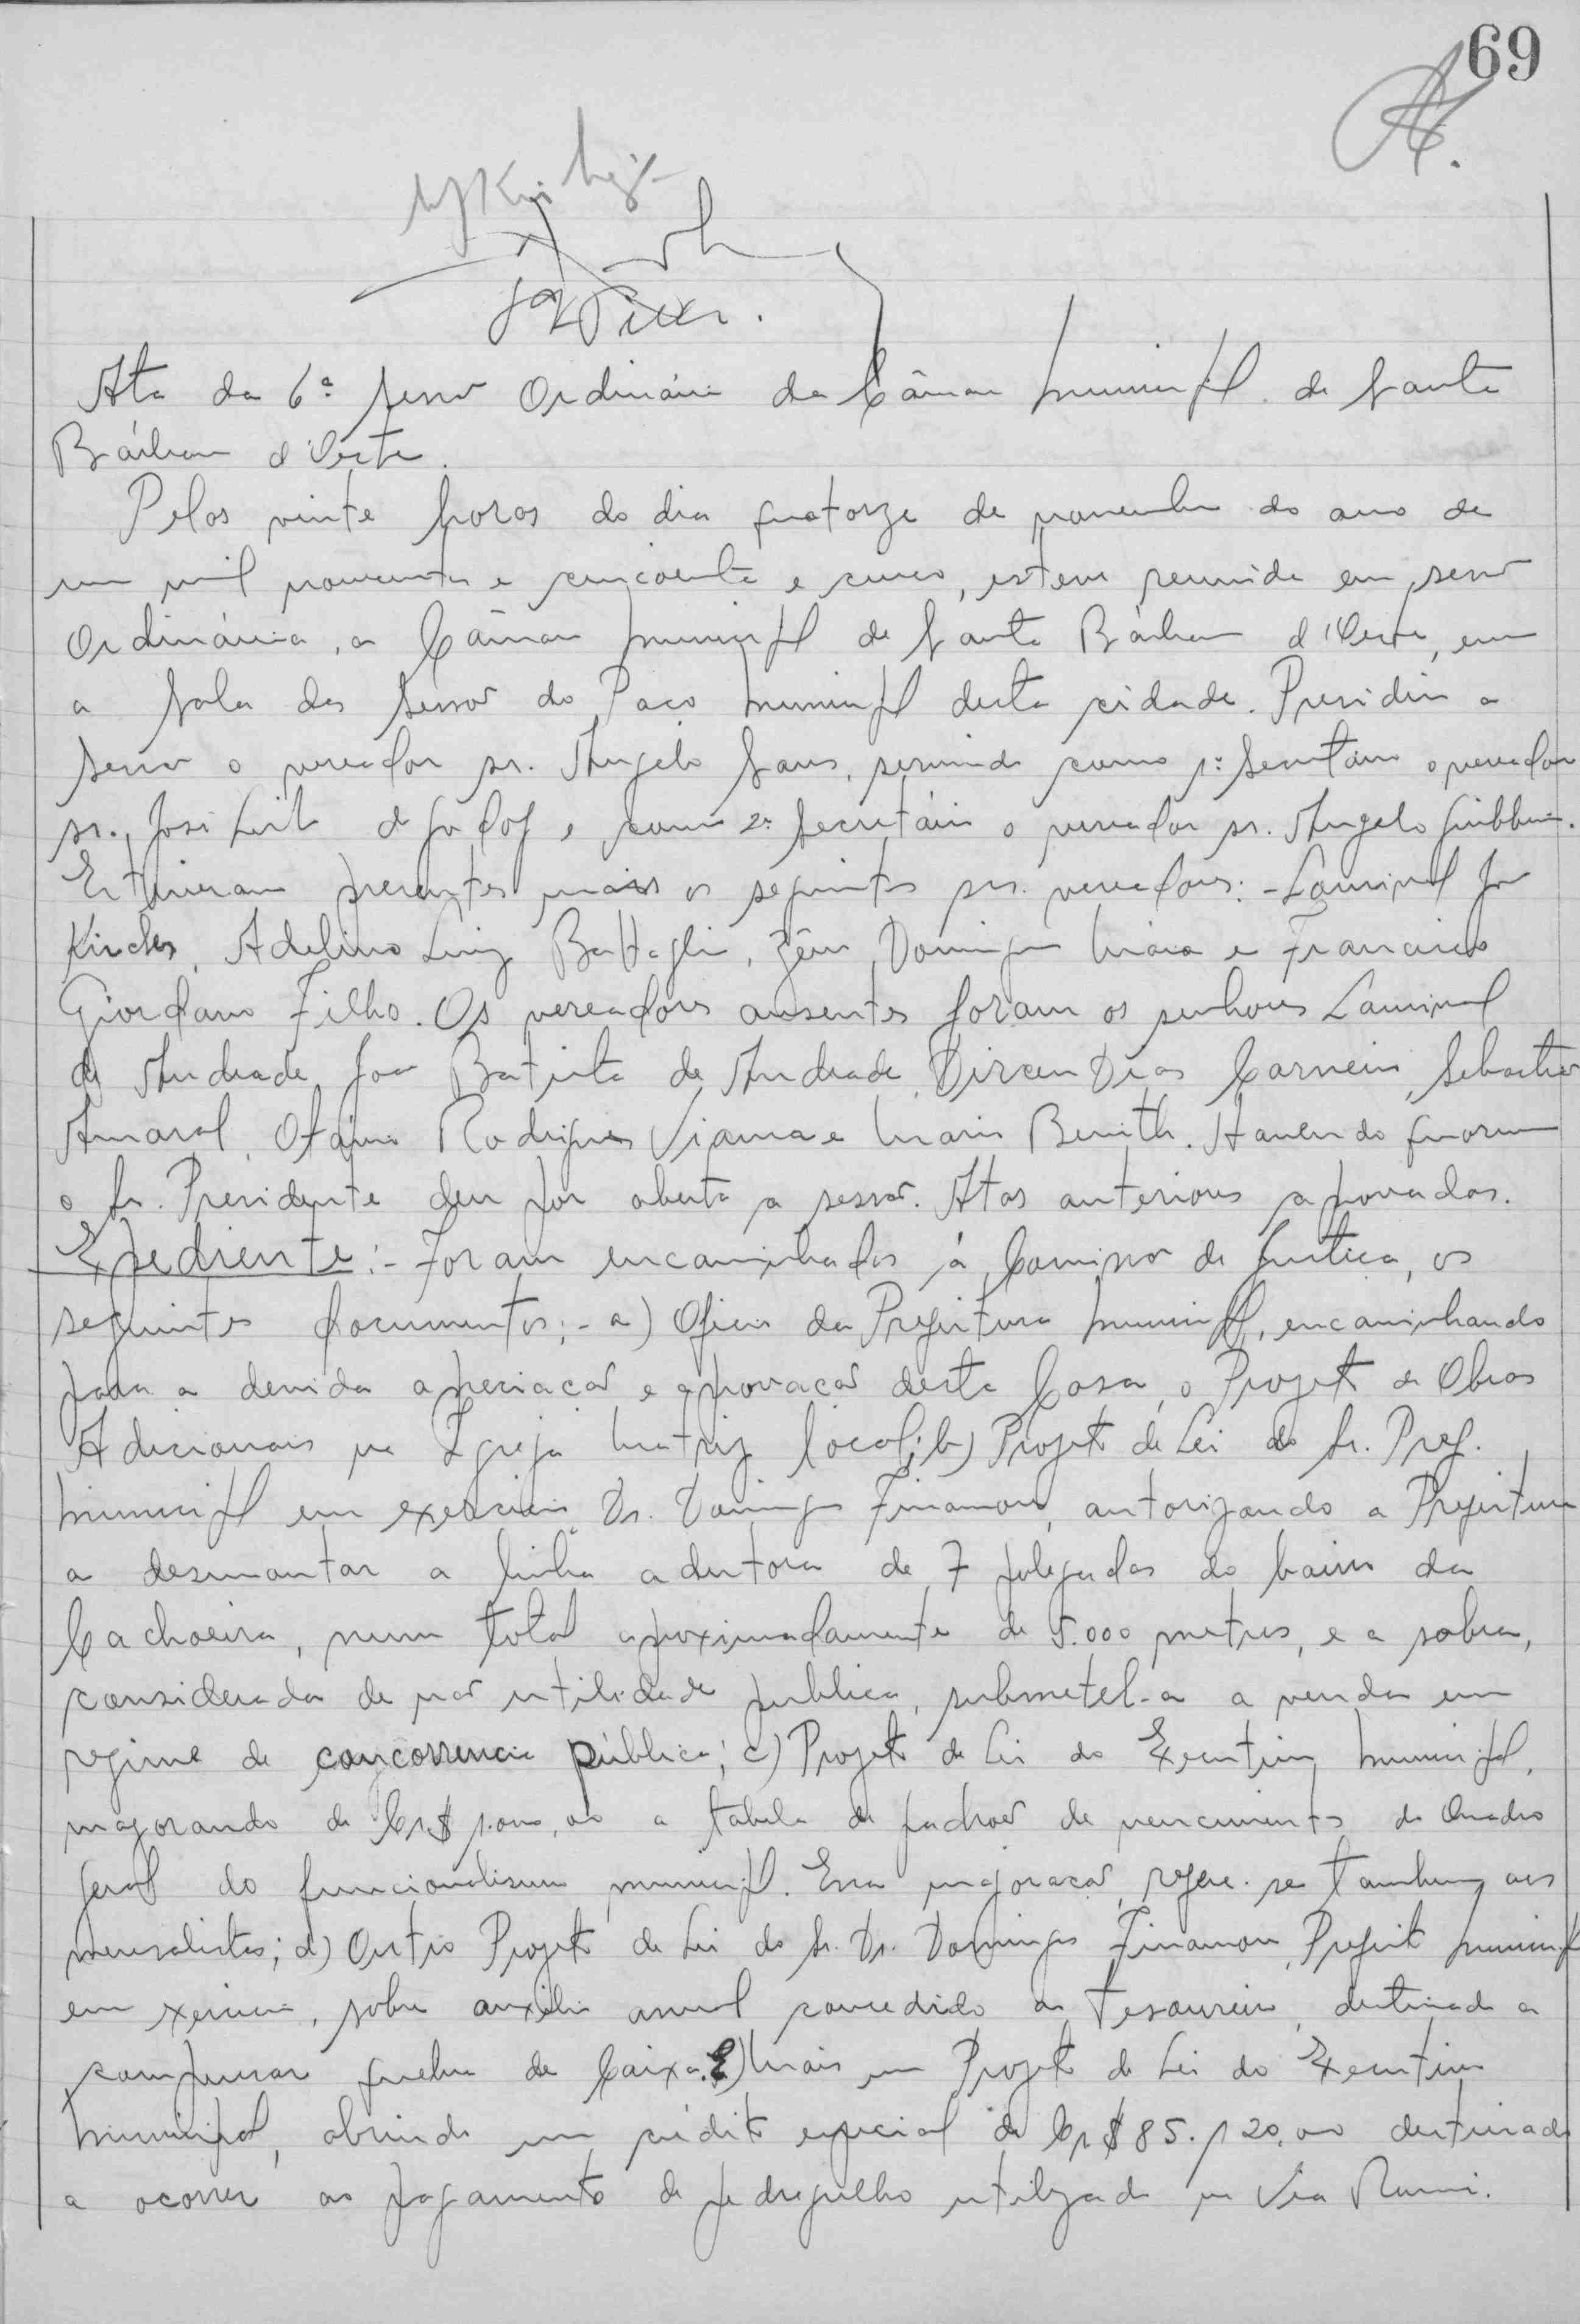 69
Ata da 6ª sessão Ordinária da Câmara Municipal de Santa
Bárbara d'Oeste.
Pelas vinte horas do dia quatorze de novembro do ano de
um mil novecentos e cincoenta e cinco, esteve reunida em sessão
Ordinária, a Câmara Municipal de Santa Bárbara d'Oeste, em
a sala das sessões do Paço Municipal desta cidade. Presidiu a
sessão o vereador sr. Angelo Sans, servindo como 1º Secretário o vereador
sr. José Leite de Godoy e como 2º secretário o vereador sr. Angelo Giubbina.
Estiveram presentes mais os seguintes srs. vereadores:- Lourival
Kirche, Adelino Luiz Battaglia, Domingos Maia e Francisco
Giordano Filho. Os vereadores ausentes foram os senhores Laurival
de Andrade, João Batista de Andrade, Dirceu Dias Carneiro, Sebastião
Amaral, Otávio Rodrigues Viana e Mario Benith. Havendo quorum
o Sr. Presidente deu por aberta a sessão. Atas anteriores aprovadas.
Expediente:- Foram encaminhados á Comissão de Justiça, os
seguintes documentos:- a) Oficio da Prefeitura Municipal, encaminhando
para a devida apreciação e aprovação desta Casa, o Projeto de Obras
Adicionais na Igreja Matriz local; b) Projeto de Lei do Sr. Pref.
Municipal em exercicio Dr. Domingos Finamore, autorizando a Prefeitura
a desmontar a linha adutora de 7 polegadas do bairro da
Cachoeira, num total aproximadamente de 5.000 metros, e a sobra,
considerada de não utilidade publica, submetel-a a venda em
regime de concorrencia pública; c) Projeto de Lei do Executivo Municipal,
majorando de Cr$ 1.000,00 a tabela de padrões de vencimentos do Quadro
geral do funcionalismo municipal. Essa majoração refere-se tambem aos
mensalistas; d) Outro Projeto de Lei do Sr. Dr. Domingos Finamore, Prefeito Municipal
em exercicio, sobre auxilio anual concedido ao Tesoureiro, destinado a
compensar quebra de Caixa. E) Mais um Projeto de Lei do Executivo
Municipal, abrindo um crédito especial de Cr$ 85.120,00 destinado
a ocorrer ao pagamento de pedregulho utilizado na Via